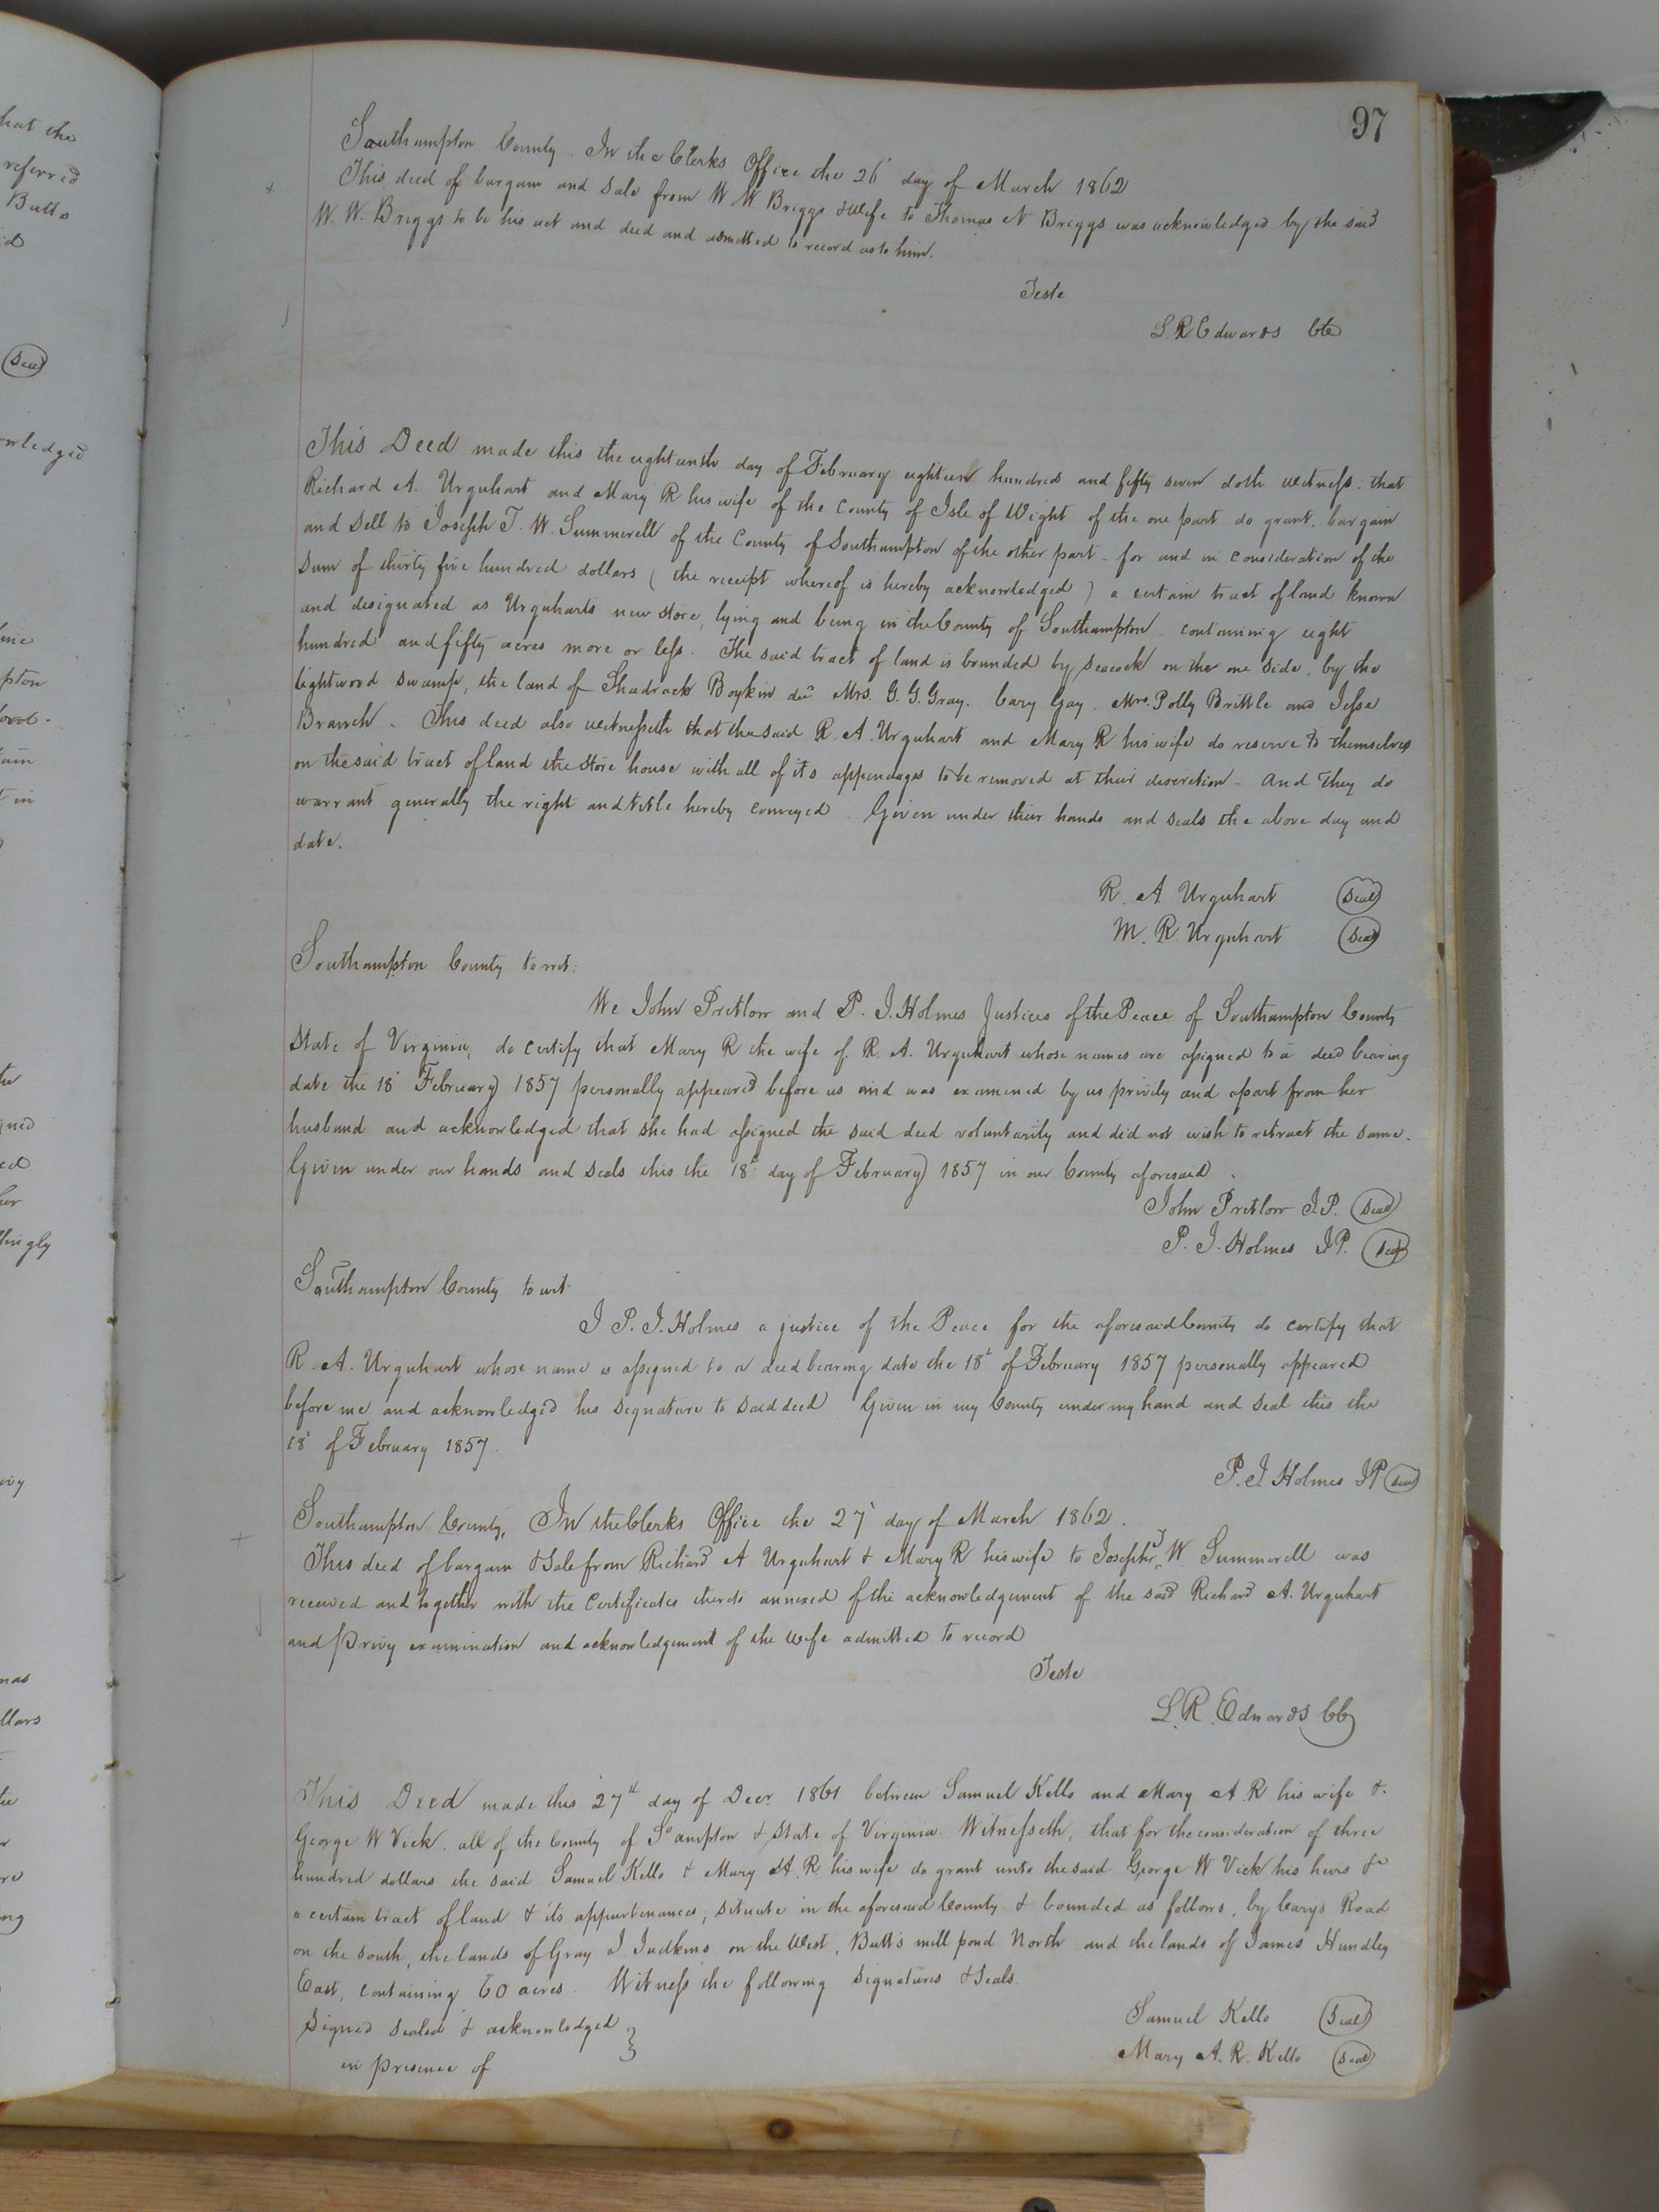 hat the
referred
Butts
id
Seal
owledged
pton
tain
t in
gned
ed
her
thingly
llars
ing
97
Southampton County. In the Clerks Office the 26' day of March 1862
This deed of bargain and Sale from W W Briggs & Wife to Thomas N Briggs was acknowledged by the said
W. W. Briggs to be his act and deed and admitted to record as to him.
Teste
L. R Edwards Clk
This Deed made this the eighteenth day of February eighteen hundred and fifty seven doth witness: that
Richard A. Urquhart and Mary R his wife of the County of Isle of Wight of the one part do grant, bargain
and Sell to Joseph T. W. Summerell of the County of Southampton of the other part - for and in consideration of the
Sum of thirty five hundred dollars ( the receipt whereof is hereby acknowledged ) a certain tract of land known
and designated as Urquharts new store, lying and being in the County of Southampton - containing eight
hundred and fifty acres more or less. The said tract of land is bounded by Seacock on the one side, by the
Lightwood Swamp, the land of Shadrack Boykin decd Mrs. G. G. Gray. Cary Gay. Mrs. Polly Brittle and Jesse
Branch. This deed also witnesseth that the said R. A. Urquhart and Mary R his wife do reserve to themselves
on the said tract of land the Store house with all of its appendages to be removed at their discretion - And They do
warrant generally the right and title hereby conveyed. Given under their hands and seals the above day and
date.
R. A Urquhart Seal
M. R. Urquhart Seal
Southampton County to wit:
We John Pretlow and P. J. Holmes Justices of the Peace of Southampton County
State of Virginia, do certify that Mary R the wife of R. A. Urquhart whose names are assigned to a deed bearing
date the 18' February 1857 personally appeared before us and was examined by us privily and apart from her
husband and acknowledged that she had assigned the said deed voluntarily and did not wish to retract the same.
Given under our hands and seals this the 18t day of February 1857 in our County aforesaid.
John Pretlow J.P. Seal
P. J. Holmes J.P. Seal
Southampton County to wit
I P. J. Holmes a justice of the Peace for the aforesaid County do certify that
R. A. Urquhart whose name is assigned to a deed bearing date the 18t of February 1857 personally appeared
before me and acknowledged his signature to said deed Given in my County under my hand and seal this the
18' of February 1857.
P. J. Holmes JP Seal
Southampton County, In the Clerks Office the 27' day of March 1862.
This deed of bargain & Sale from Richard A Urquhart & Mary R his wife to Joseph T W. Summerell was
received and together with the Certificates thereto annexed of the acknowledgement of the said Richard A. Urquhart
and Privy examination and acknowledgement of the wife admitted to record
Teste
L. R. Edwards CC
This Deed made this 27th day of Decr 1861 between Samuel Kello and Mary A. R his wife &
George W Vick. all of the County of So ampton & State of Virginia. Witnesseth, that for the consideration of three
hundred dollars the said Samuel Kello & Mary A. R his wife do grant unto the said George W Vick his heirs &c
a certain tract of land & its appurtenances, situate in the aforesaid County & bounded as follows, by Carys Road
on the South, the lands of Gray J Judkins on the West, Butts mill pond North and the lands of James Hundley
East, containing 60 acres. Witness the following Signatures & Seals.
Signed Sealed & acknowledged
in presence of
Samuel Kello Seal
Mary A. R. Kello Seal